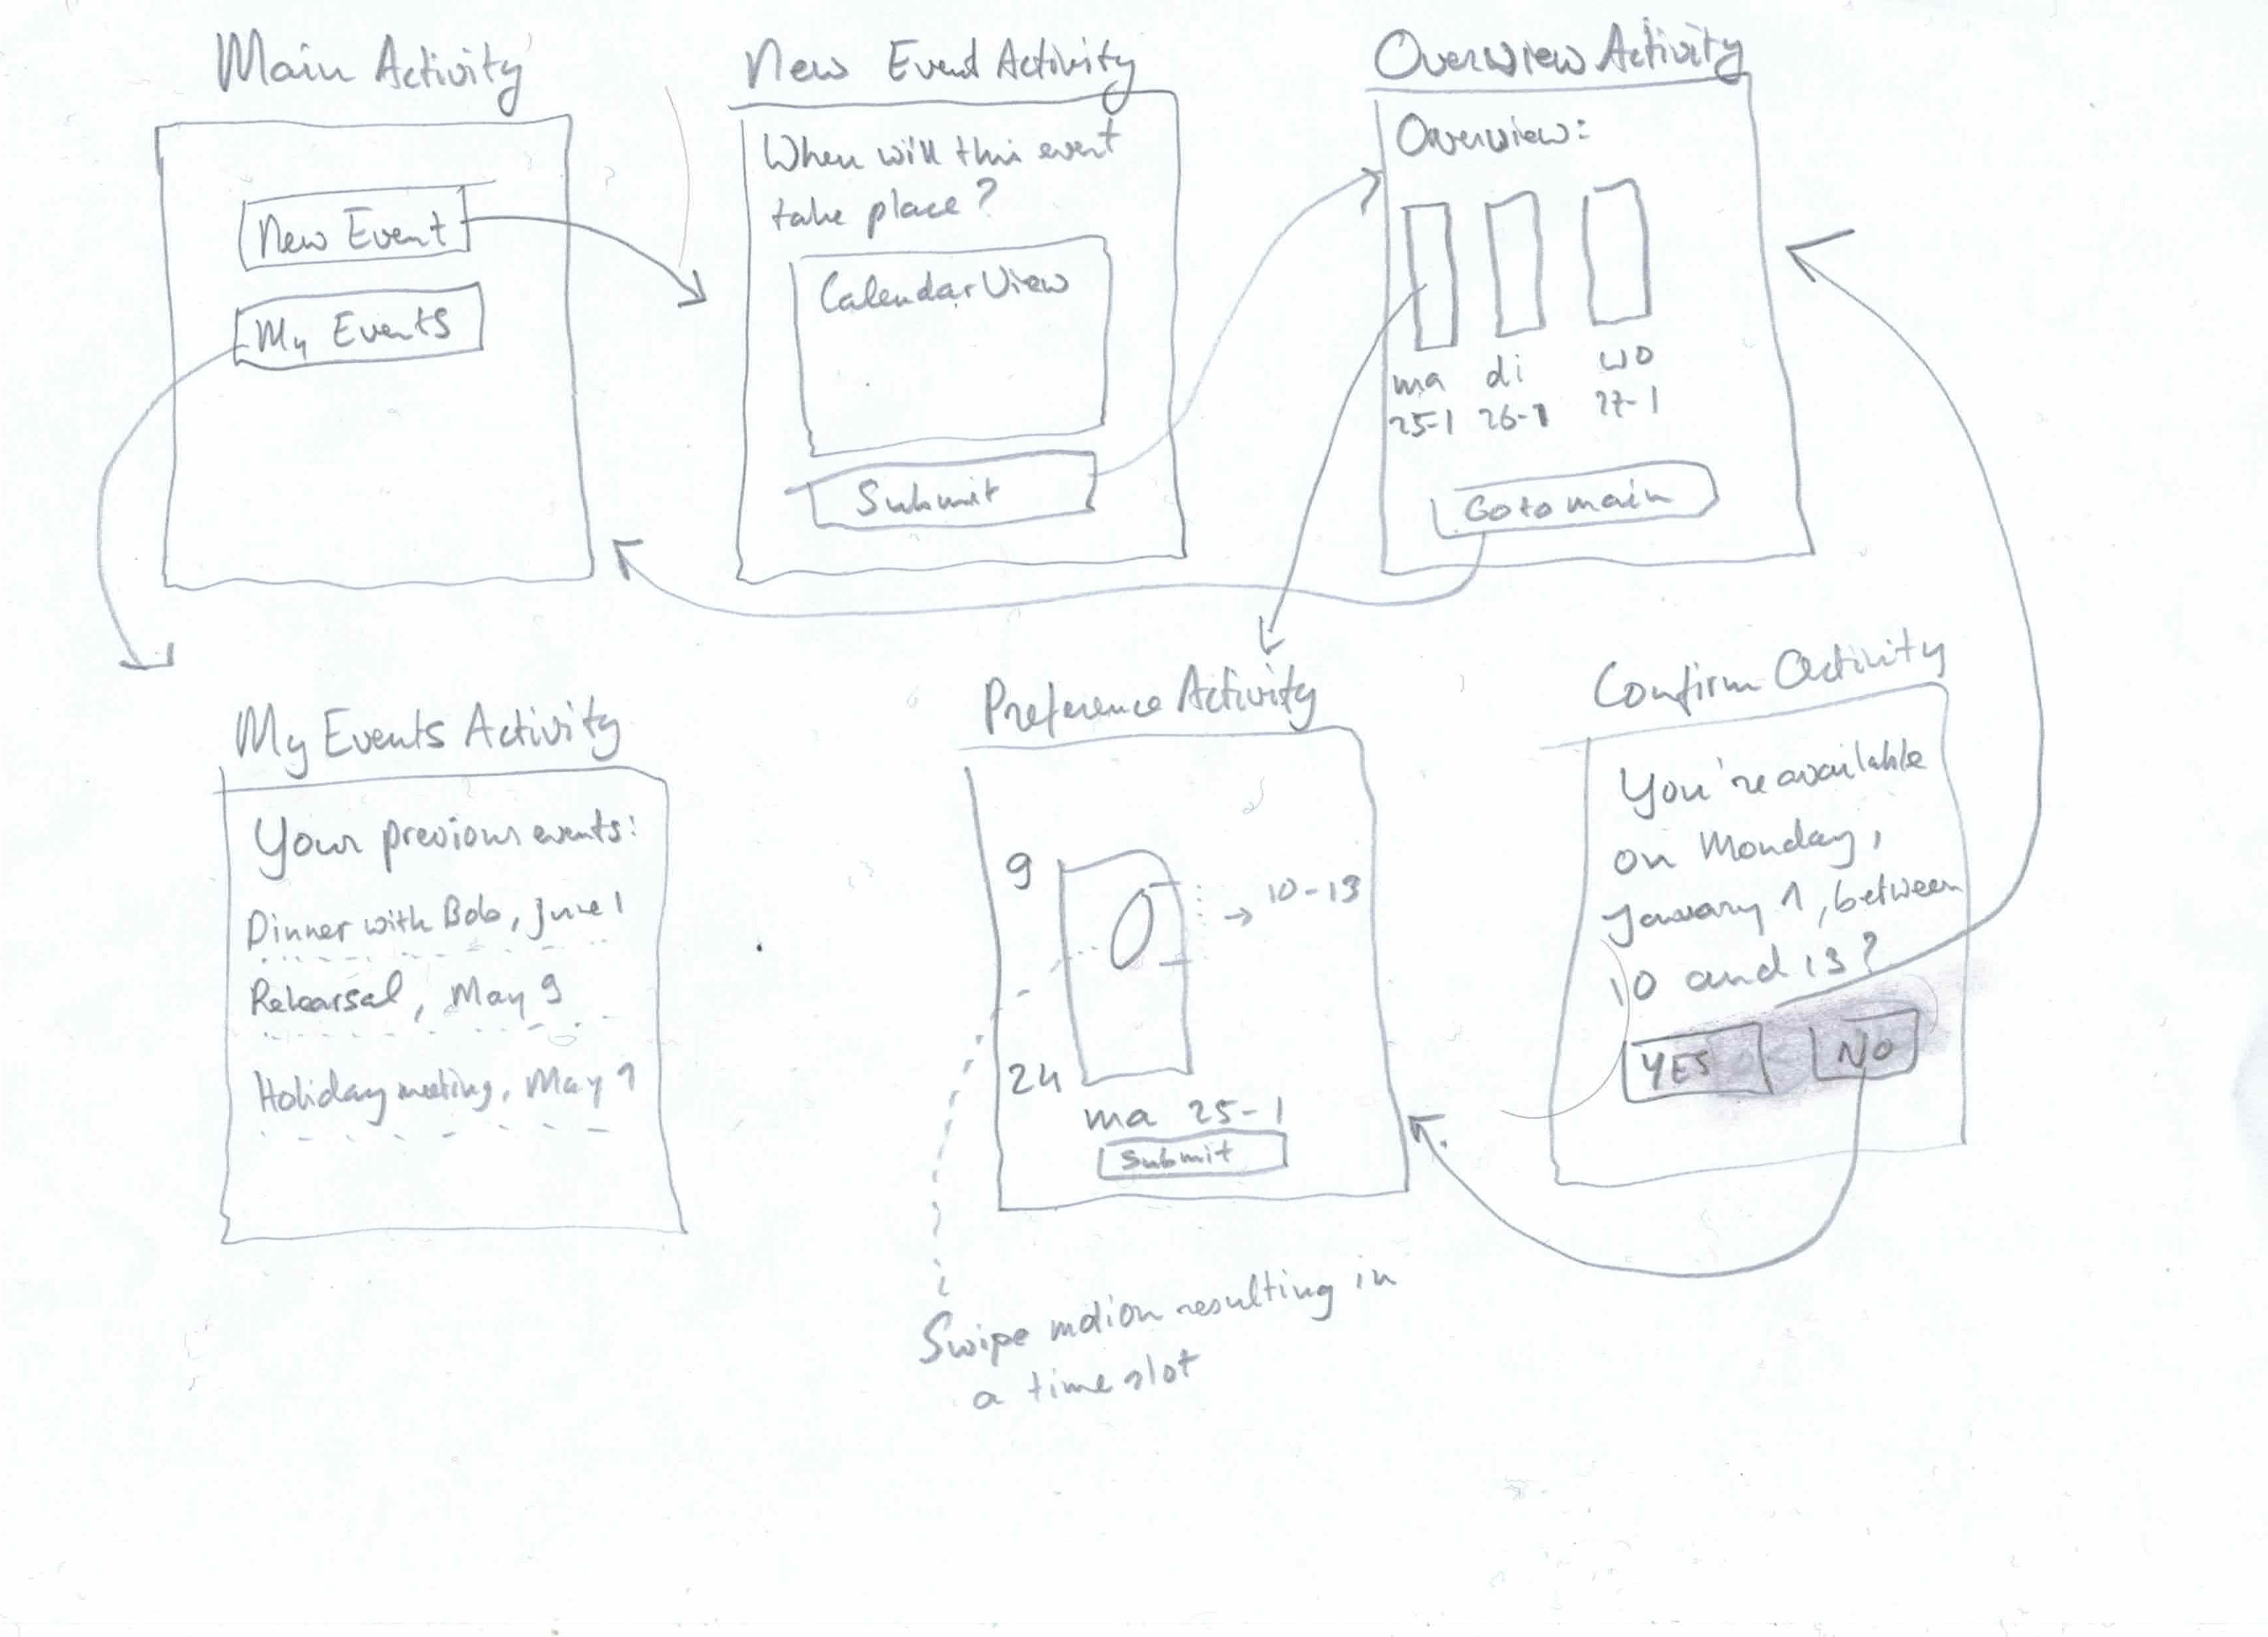 Main Activity
New Event
My Events
New Event Activity
When will this event
take place?
CalendarView
Submit
Overview Activity
Overview:
ma
25-1
di
26-1
wo
27-1
Go to main
My Events Activity
Your previous events:
Dinner with Bob, June 1
Rehearsal, May 9
Holiday meeting, May 1
Preference Activity
9
10-13
24
ma 25-1
Submit
Swipe motion resulting in
a time slot
Confirm Activity
You're available
on Monday,
January 1, between
10 and 13?
YES
NO